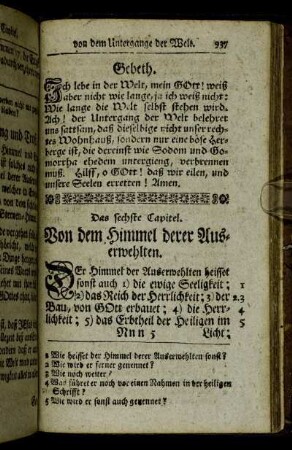 von dem Untergange der Welt. 937
Gebeth.
Ich lebe in der Welt, mein GOtt! weiß
aber nicht wie lange, ja ich weiß nicht:
Wie lange die Welt selbst stehen wird.
Ach! der Untergang der Welt belehret
uns sattsam, daß dieselbige nicht unser rech-
tes Wohnhauß, sondern nur eine böse Her-
berge ist, die dereinst wie Sodom und Go-
morrha ehedem untergieng, verbrennen
muß. Hilff, o GOtt! daß wir eilen, und
unsere Seelen erretten! Amen.
Das sechste Capitel.
Von dem Himmel derer Aus-
erwehlten.
DEr Himmel der Auserwehlten heisset
sonst auch 1) die ewige Seeligkeit; 1
2) das Reich der Herrlichkeit; 3) der 2.3
Bau, von GOtt erbauet; 4) die Herr- 4
lichkeit; 5) das Erbtheil der Heiligen im 5
Nnn 5 Licht;
1 Wie heisset der Himmel derer Auserwehlten sonst?
2 Wie wird er ferner genennet?
3 Wie noch weiter?
4 Was führet er noch vor einen Nahmen in der heiligen
Schrifft?
5 Wie wird er sonst auch genennet?